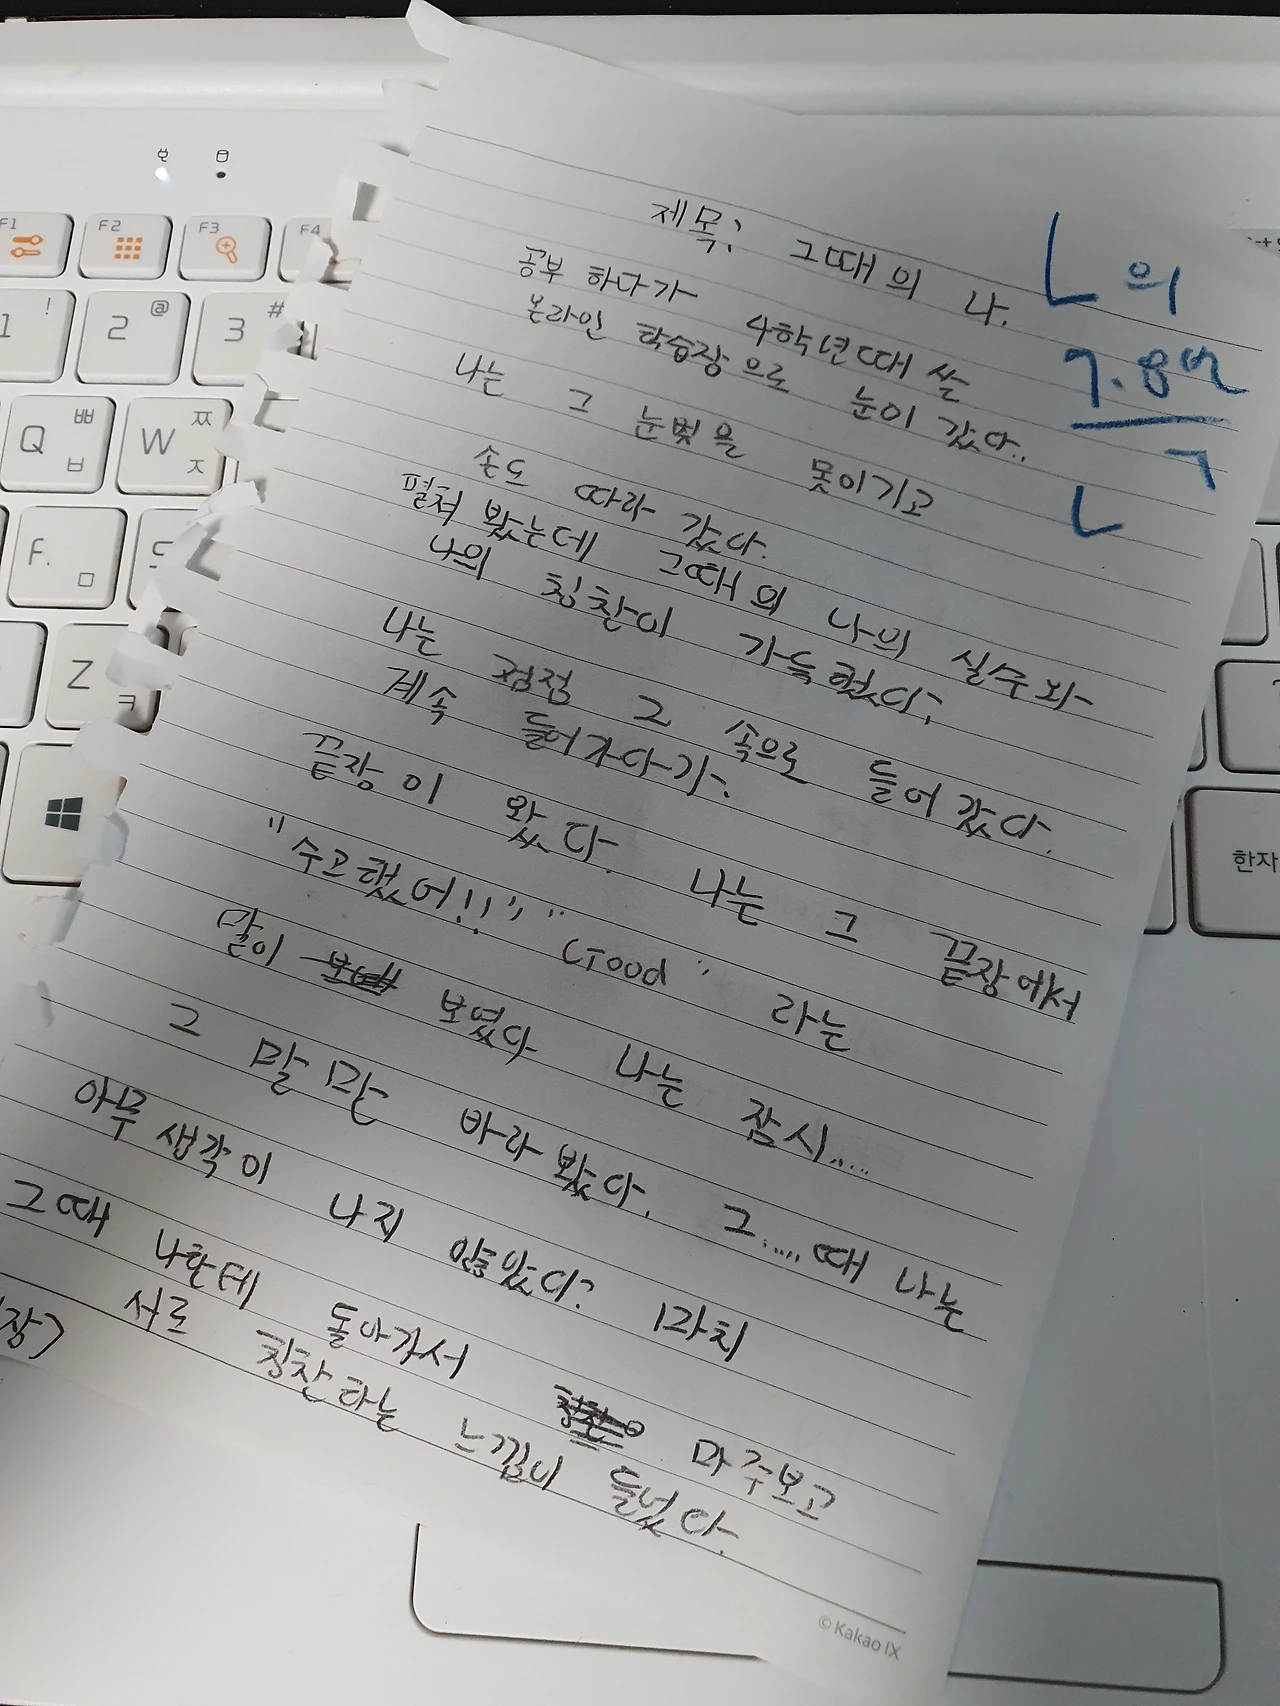 제목: 그때의 나.
공부 하다가 4학년때 쓴
온라인 학습장으로 눈이 갔다..
나는 그 눈빛을 못이기고
손도 따라 갔다.
펼쳐 봤는데 그때의 나의 실수와
나의 칭찬이 가득했다.
나는 점점 그 속으로 들어갔다.
계속 들어가다가.
끝장이 왔다. 나는 그 끝장에서
"수고했어!!", "Good" 라는
말이 보였다 나는 잠시....
그 말만 바라봤다. 그.....때 나는
아무생각이 나지 않았다. 마치
그때 나한테 돌아가서 마주보고
서로 칭찬하는 느낌이 들었다.
장>
ㄴ의
7.8번
ㄱ
ㄴ
F1
F2
F3
F4
1 !
2 @
3 #
Q ㅃ ㅂ
W ㅉ ㅈ
ㅁ
Z ㅋ
한자
© Kakao IX